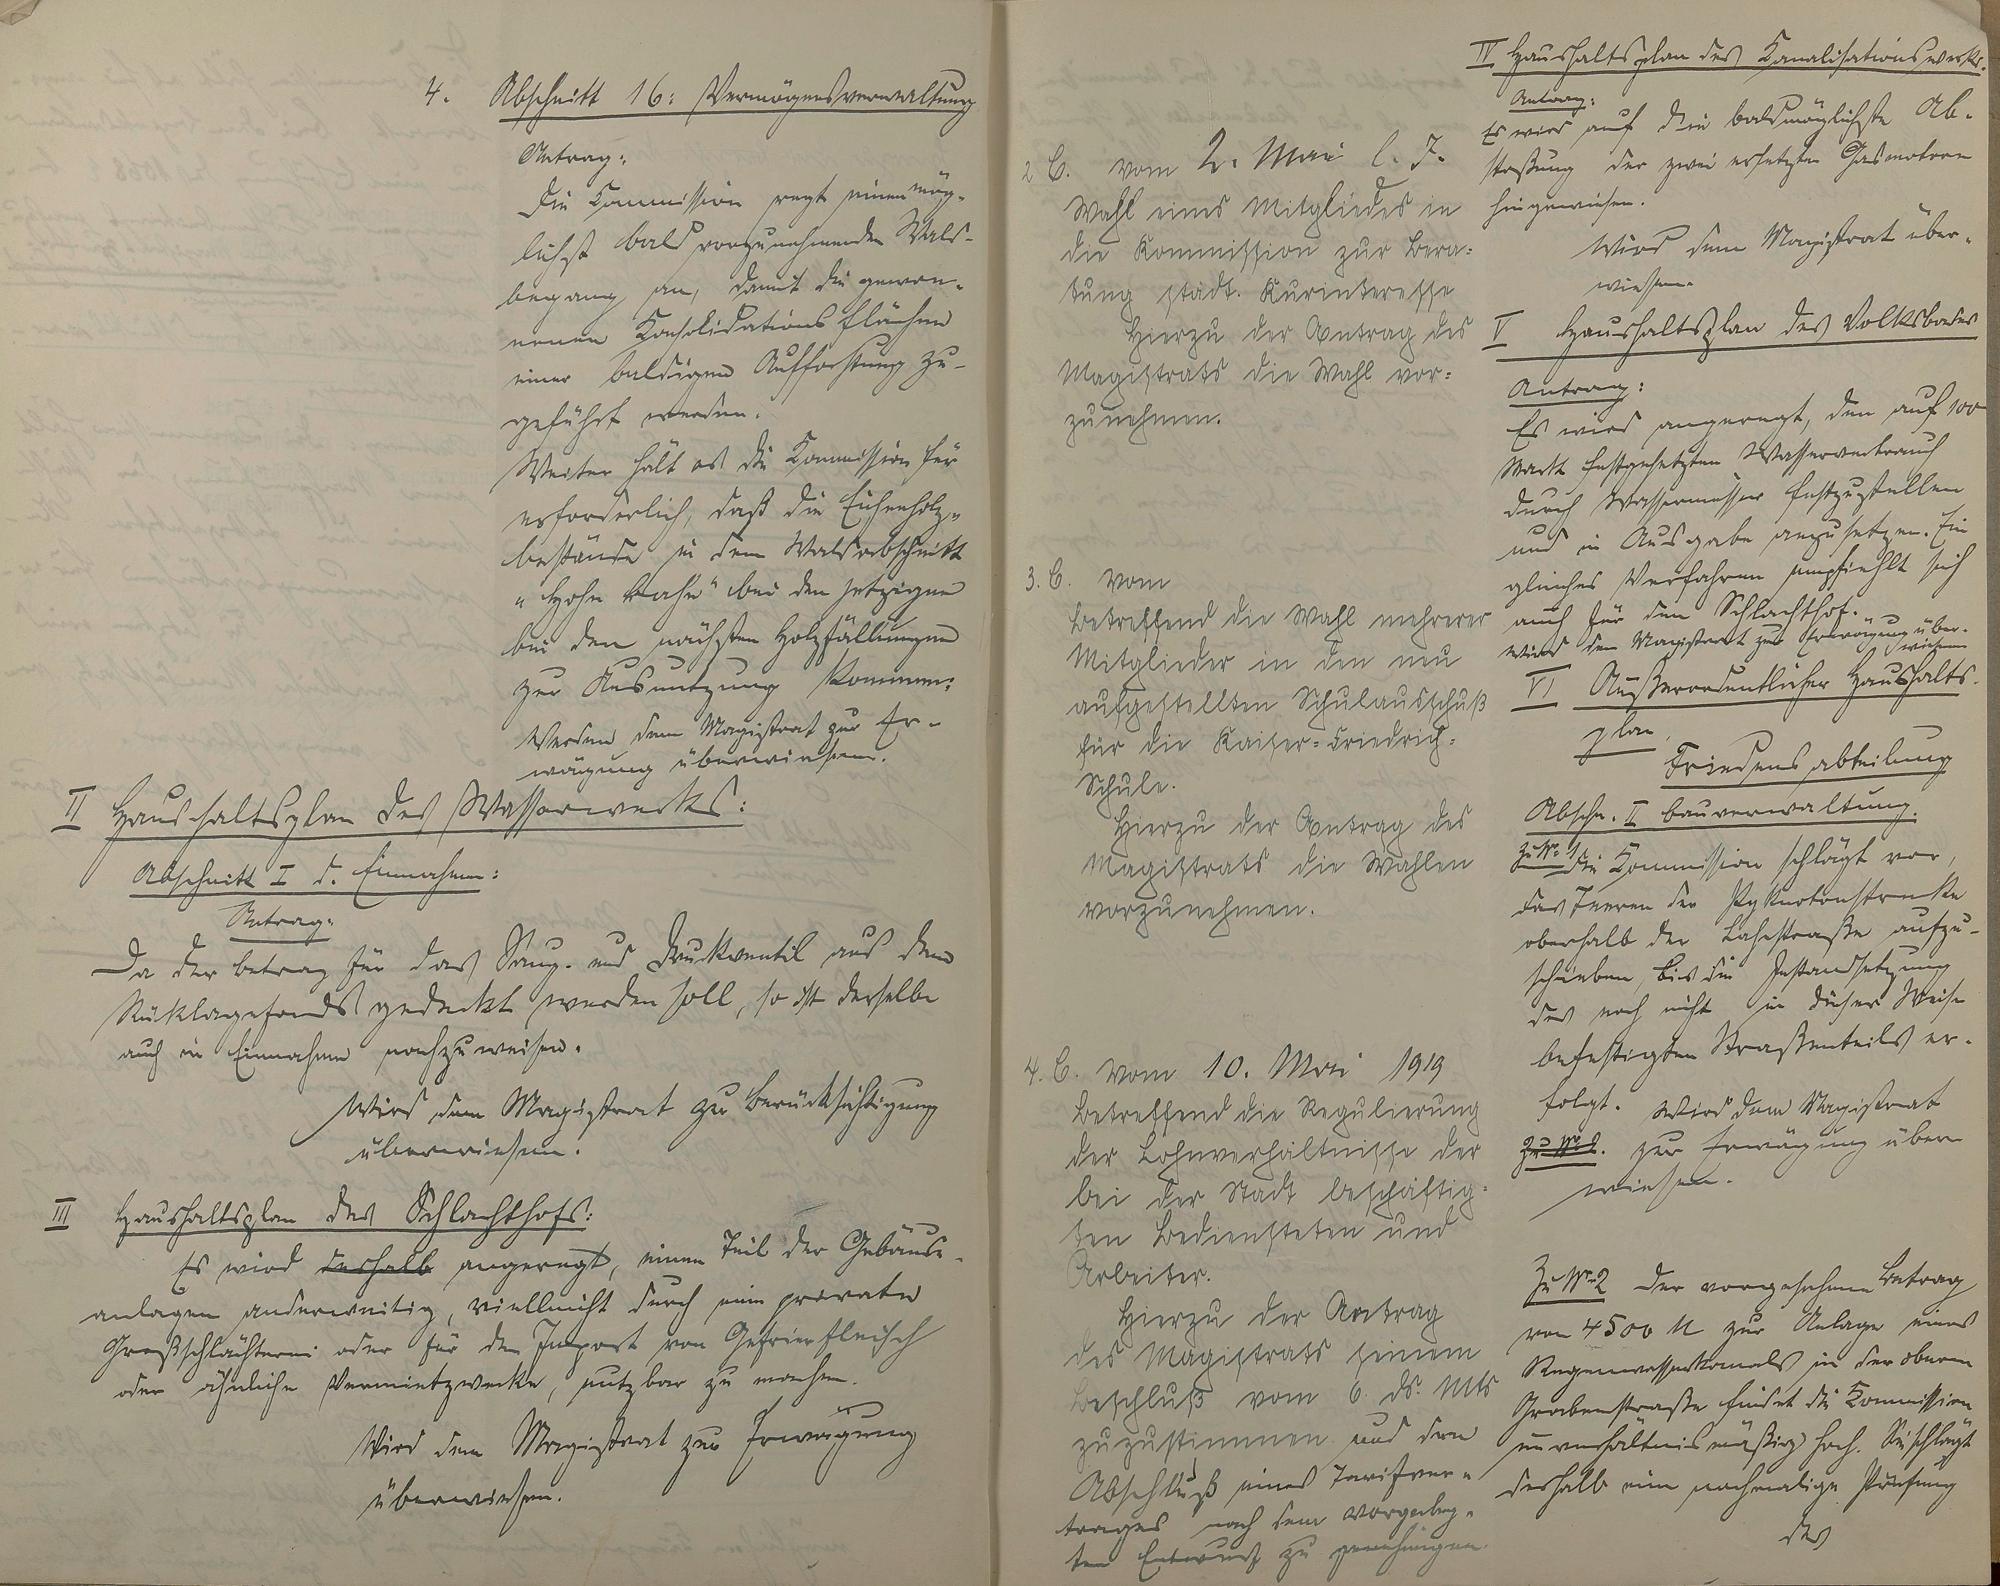 4. Abschnitt 16: Vermögensverwaltung
Antrag:
Die Commission regt einen mög-
lichst bald vorzunehmenden Wald-
begang an, damit die gewon-
nenen Konsolidationsflächen
einer baldigen Aufforstung zu-
geführt werden.
Weiter hält es die Commission für
erforderlich, daß die Eichenholz-
bestände in dem Waldabschnitt
"Hohe " bei den jetzigen
bei den nächsten Holzfällungen
zur Ausnutzung kommen:
Werden dem Magistrat zur Er-
wägung überwiesen.
II Haushaltsplan des Wasserwerks:
Abschnitt I d. Einnahmen:
Antrag:
Da der Betrag für das Saug- und Druckventil aus dem
Rücklagefonds gedeckt werden soll, so ist derselbe
auch in Einnahme nachzuweisen.
Wird dem Magistrat zur Berücksichtigung
überwiesen.
III Haushaltsplan des Schlachthofs:
Es wird deshalb angeregt, einen Teil der Gebäude-
anlagen anderweitig, vielleicht durch eine private
Großschlächterei oder für den Import von Gefrierfleisch
oder ähnliche Vermietzwecke, nutzbar zu machen.
Wird dem Magistrat zur Erwägung
überwiesen.
2 B. vom 2. Mai l. J.
Wahl eines Mitgliedes in
die Kommission zur Bera-
tung städt. Kurinteresse
Hierzu der Antrag des
Magistrats die Wahl vor-
zunehmen.
3. B. vom
betreffend die Wahl mehrerer
Mitglieder in den neu
aufgestellten Schulausschuß
für die Kaiser-Friedrich-
Schule.
Hierzu der Antrag des
Magistrats die Wahlen
vorzunehmen.
4. B. vom 10. Mai 1919
betreffend die Regulierung
der Lohnverhältnisse der
bei der Stadt beschäftig-
ten Bediensteten und
Arbeiter.
Hierzu der Antrag
des Magistrats seinem
Beschluß vom 6. ds. Mts
zuzustimmen und den
Abschluß eines Tarifver-
trages nach dem vorgeleg-
ten Entwurf zu genehmigen.
IV Haushaltsplan des Kanalisationswerks.
Antrag:
Es wird auf die baldmöglichste Ab-
stoßung der zwei ersetzten Gasmotoren
hingewiesen.
Wird dem Magistrat über-
wiesen.
V Haushaltsplan des Volksbades
Antrag:
Es wird angeregt, den auf 100
Mark festgesetzten Wasserverbrauch
durch Wassermesser festzustellen
und in Ausgabe anzusetzen. Ein
gleiches Verfahren empfiehlt sich
auch für den Schlachthof.
wird dem Magistrat zur Erwägung über-
wiesen
VI Außerordentlicher Haushalts-
plan.
Friedensabteilung
Abschn. II Bauverwaltung.
Zu Nr. 1 Die Commission schlägt vor,
das Teeren der
oberhalb der Lahestraße aufzu-
schieben, bis die Instandsetzung
des noch nicht in dieser Weise
befestigten Straßenteils er-
folgt. Wird dem Magistrat
Zu Nr. 2. zur Erwägung über-
wiesen.
Zu Nr. 2 Der vorgesehene Betrag
von 4500 M zur Anlage eines
Regenwasserkanals in der oberen
Grabenstraße findet die Commission
unverhältnismäßig hoch. Sie schlägt
deshalb eine nochmalige Prüfung
des